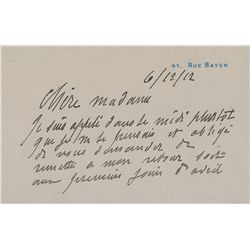 41, RUE BAYEN
6/12/12
Chère madame
Je suis appelé dans le midi plustôt
que je ne le pensais et obligé
de vous demander de
remettre à mon retour soit
aux premiers jours d'avril